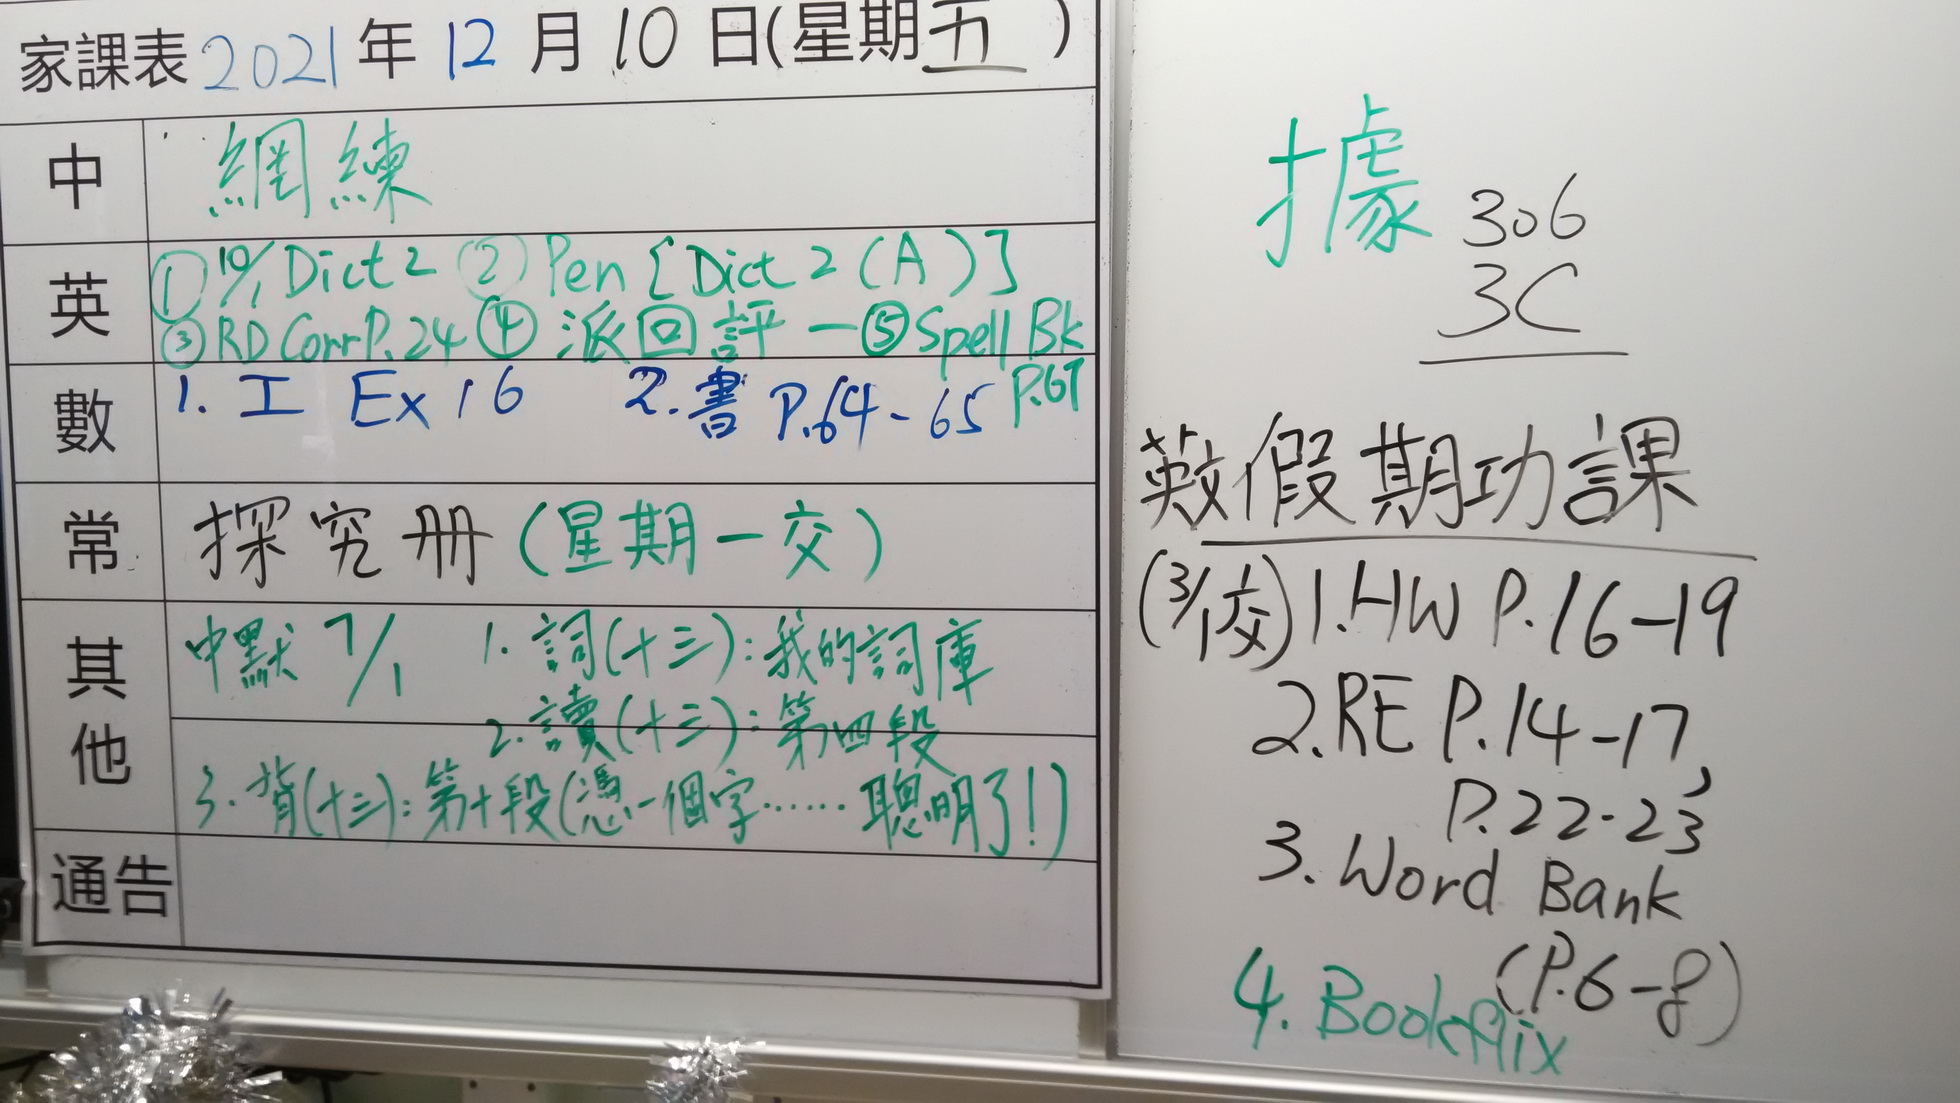 家課表 2021年 12 月 10 日(星期五)
中 網練
英 ① 10/1 Dict 2 ② Pen [Dict 2 (A)]
③ RD Corr P.24 ④ 派回評一 ⑤ Spell Bk
P.67
數 1. 工 Ex 16 2. 書 P.64-65
常 探究册 (星期一交)
其他 中默 7/1 1. 詞(十三): 我的詞庫
2. 讀(十三): 第四段
3. 背(十三): 第十段(憑一個字……聰明了!)
通告
據
306
3C
英文假期功課
(3/1交) 1. HW P.16-19
2. RE P.14-17,
P.22-23
3. Word Bank
(P.6-8)
4. Bookflix